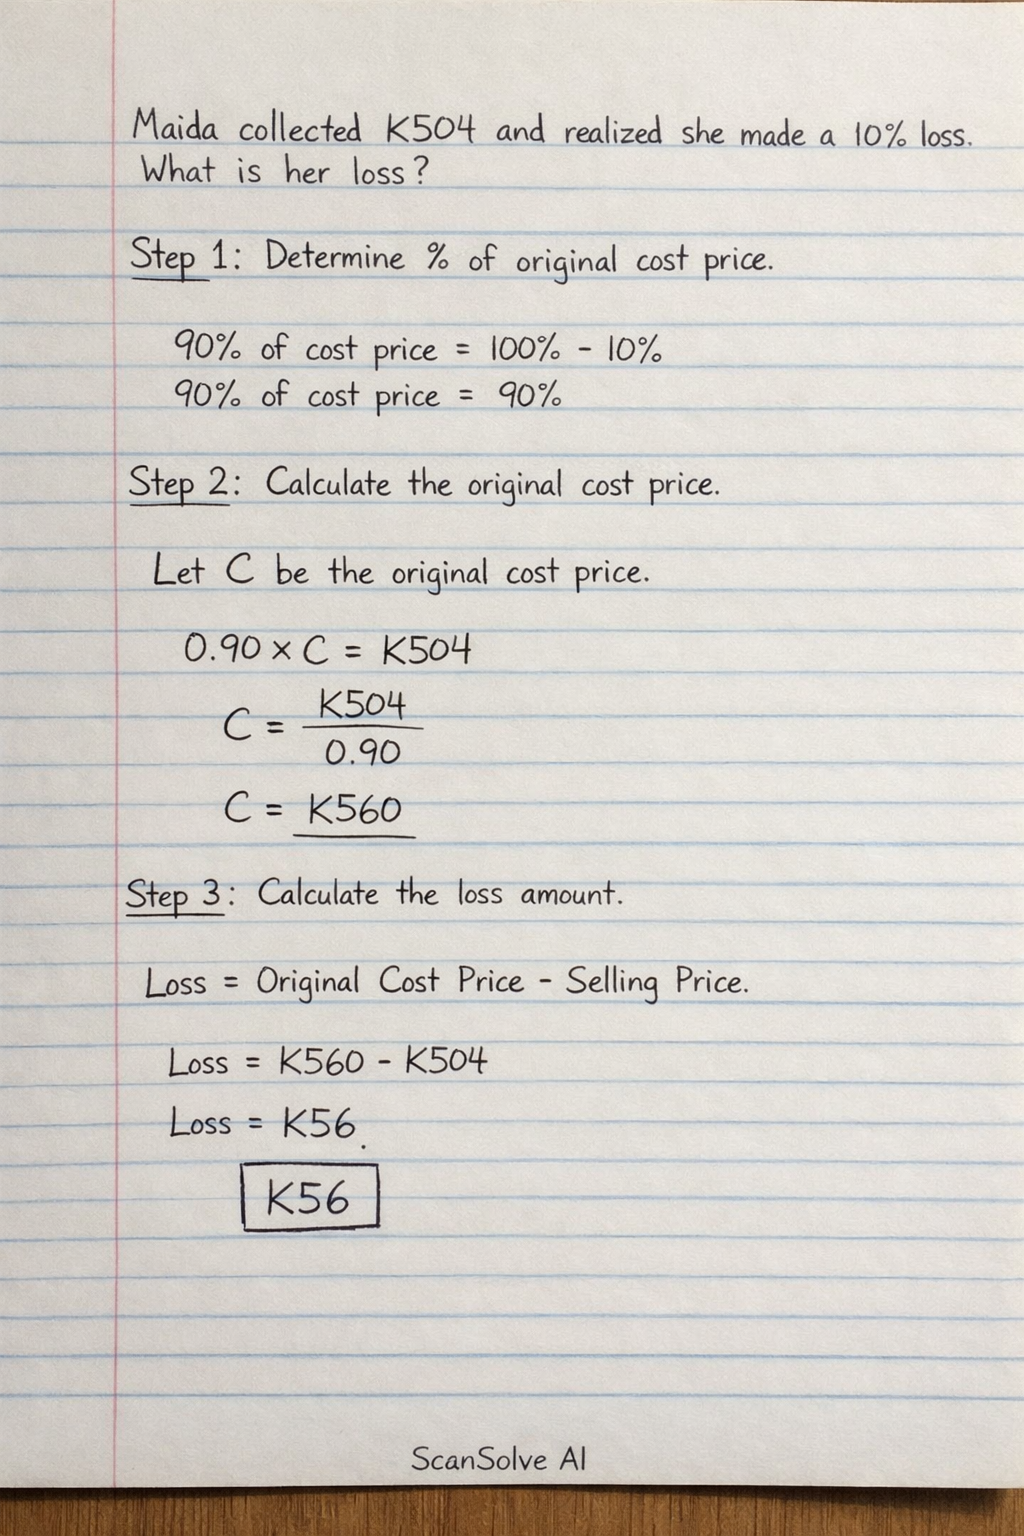 Maida collected K504 and realized she made a 10% loss.
What is her loss?
Step 1: Determine % of original cost price.
90% of cost price = 100% - 10%
90% of cost price = 90%
Step 2: Calculate the original cost price.
Let C be the original cost price.
0.90 × C = K504
C = K504
0.90
C = K560
Step 3: Calculate the loss amount.
Loss = Original Cost Price - Selling Price.
Loss = K560 - K504
Loss = K56.
K56
ScanSolve AI